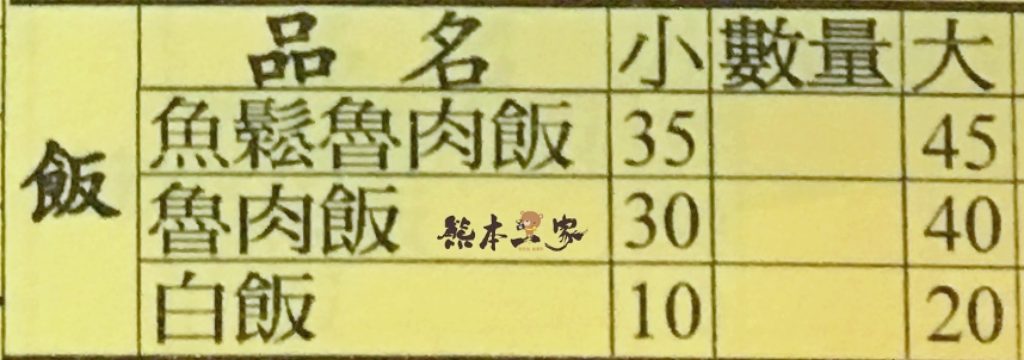 飯
品名 小 數量 大
魚鬆魯肉飯 35 45
魯肉飯 30 40
白飯 10 20
熊本一家